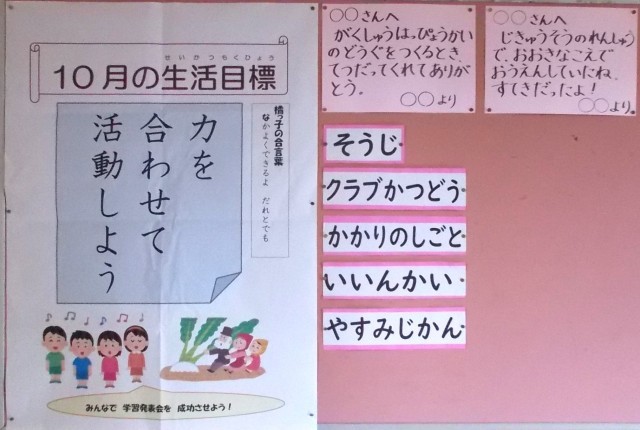 せいかつもくひょう
10月の生活目標
力を
合わせて
活動しよう
橋っ子の合言葉
なかよくできるよ だれとでも
みんなで 学習発表会を 成功させよう！
○○さんへ
がくしゅうはっぴょうかい
のどうぐをつくるとき、
てつだってくれてありが
とう。
○○より
○○さんへ
じきゅうそうのれんしゅう
で、おおきなこえで
おうえんしていたね。
すてきだったよ！
○○より
そうじ
クラブかつどう
かかりのしごと
いいんかい
やすみじかん